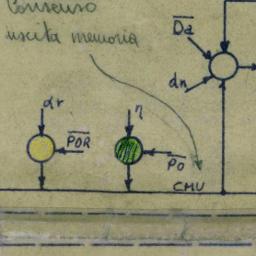 Consenso
uscita memoria
D̅a̅
dn
dr
P̅O̅R̅
η
P̅o̅
CMU